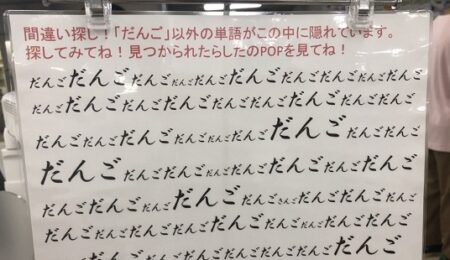 間違い探し!「だんご」以外の単語がこの中に隠れています。
探してみてね!見つかられたらしたのPOPを見てね!
だんごだんごだんごだんごだんごだんごだんごだんご
だんごだんごだんごだんごだんごだんごだんごだんご
だんごだんごだんごだんごだんごだんごだんごだんご
だんごだんごだんごだんごだんごだんごだんご
だんごだんごだんごだんごだんごだんごだんごだんご
だんごだんごだんごだんごだんごさんごだんごだんご
だんごだんごだんごだんごだんごだんごだんごだんご
だんごだんごだんごだんごだんごだんごだんご